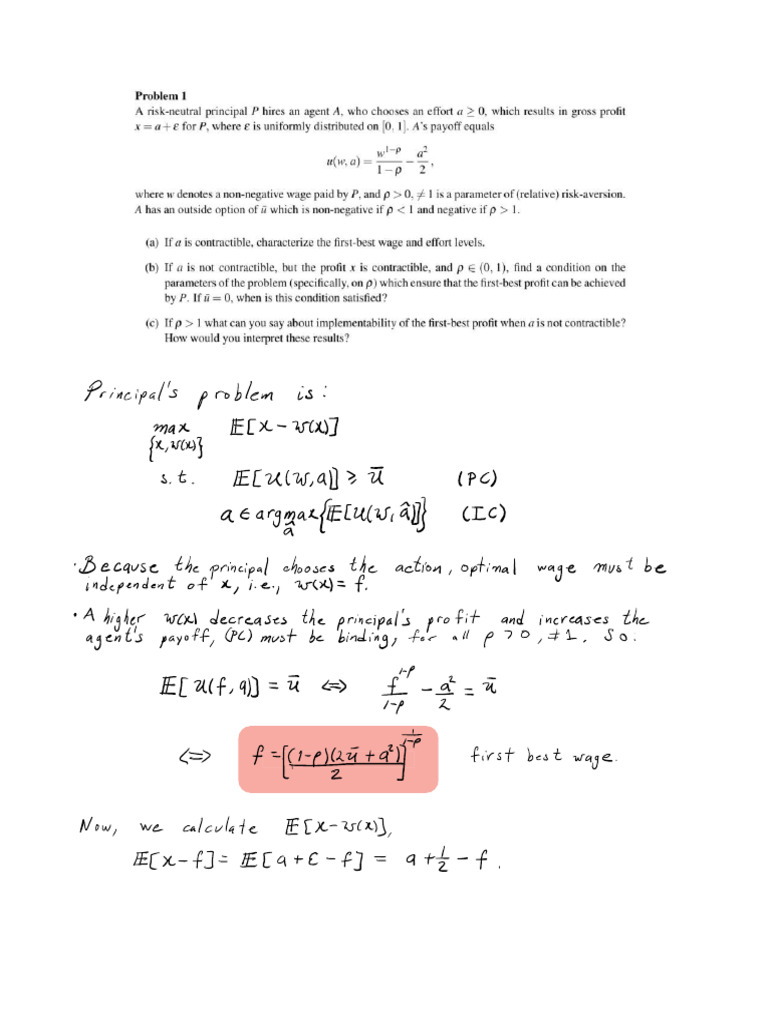 Problem 1
A risk-neutral principal P hires an agent A, who chooses an effort a ≥ 0, which results in gross profit
x = a + ε for P, where ε is uniformly distributed on [0, 1]. A's payoff equals
u(w,a) = w^{1−ρ}/(1−ρ) − a²/2,
where w denotes a non-negative wage paid by P, and ρ > 0, ≠ 1 is a parameter of (relative) risk-aversion.
A has an outside option of ū which is non-negative if ρ < 1 and negative if ρ > 1.
(a) If a is contractible, characterize the first-best wage and effort levels.
(b) If a is not contractible, but the profit x is contractible, and ρ ∈ (0, 1), find a condition on the
parameters of the problem (specifically, on ρ) which ensure that the first-best profit can be achieved
by P. If ū = 0, when is this condition satisfied?
(c) If ρ > 1 what can you say about implementability of the first-best profit when a is not contractible?
How would you interpret these results?
Principal's problem is:
max E[x − w(x)]
{x,w(x)}
s.t. E[u(w,a)] ≥ ū (PC)
a ∈ argmax{E[u(w,â)]} (IC)
â
· Because the principal chooses the action, optimal wage must be
independent of x, i.e., w(x) = f.
· A higher w(x) decreases the principal's profit and increases the
agent's payoff, (PC) must be binding, for all ρ > 0, ≠ 1. So.
E[u(f,a)] = ū ⇔ f^{1−ρ}/(1−ρ) − a²/2 = ū
⇔ f = [(1−ρ)(2ū + a²)/2]^{1/(1−ρ)} first best wage.
Now, we calculate E[x − w(x)],
E[x − f] = E[a + ε − f] = a + 1/2 − f.